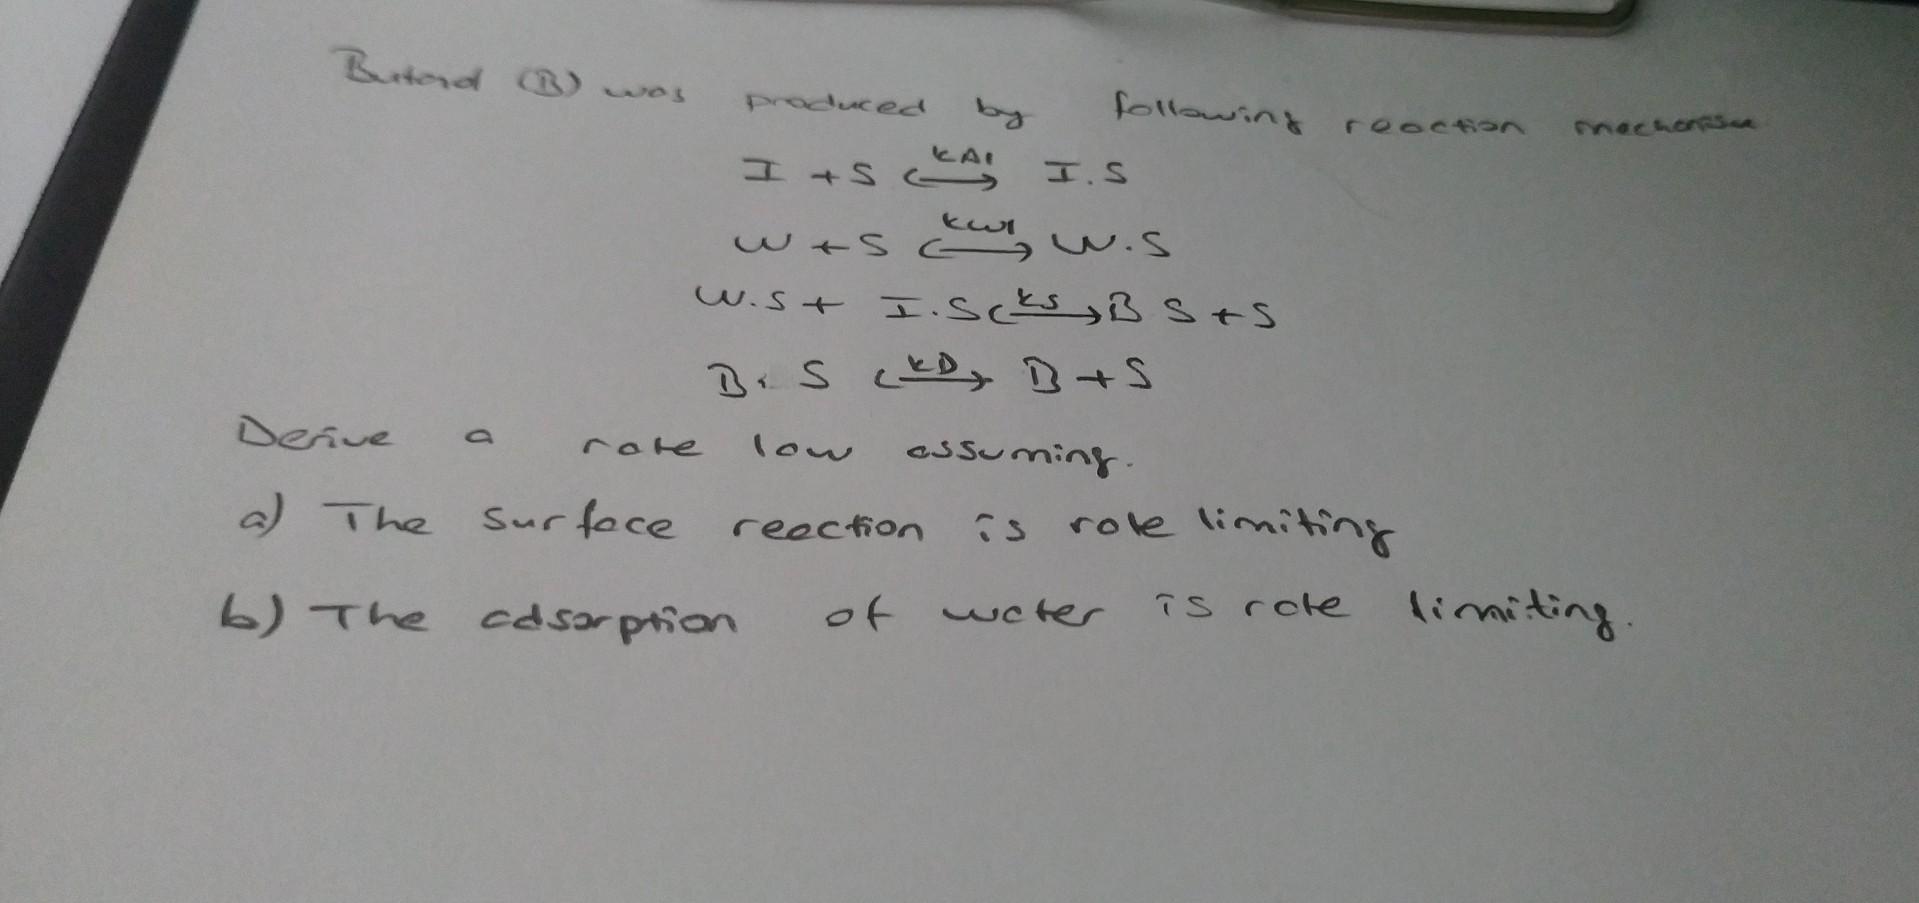 Butanol (B) was produced by following reaction mechanism
I + S ⇌ kAI I.S
W + S ⇌ kWI W.S
W.S + I.S ⇌ kS B S + S
B. S ⇌ kD B + S
Derive a rate law assuming.
a) The surface reection is rate limiting
b) The adsorption of water is rate limiting.